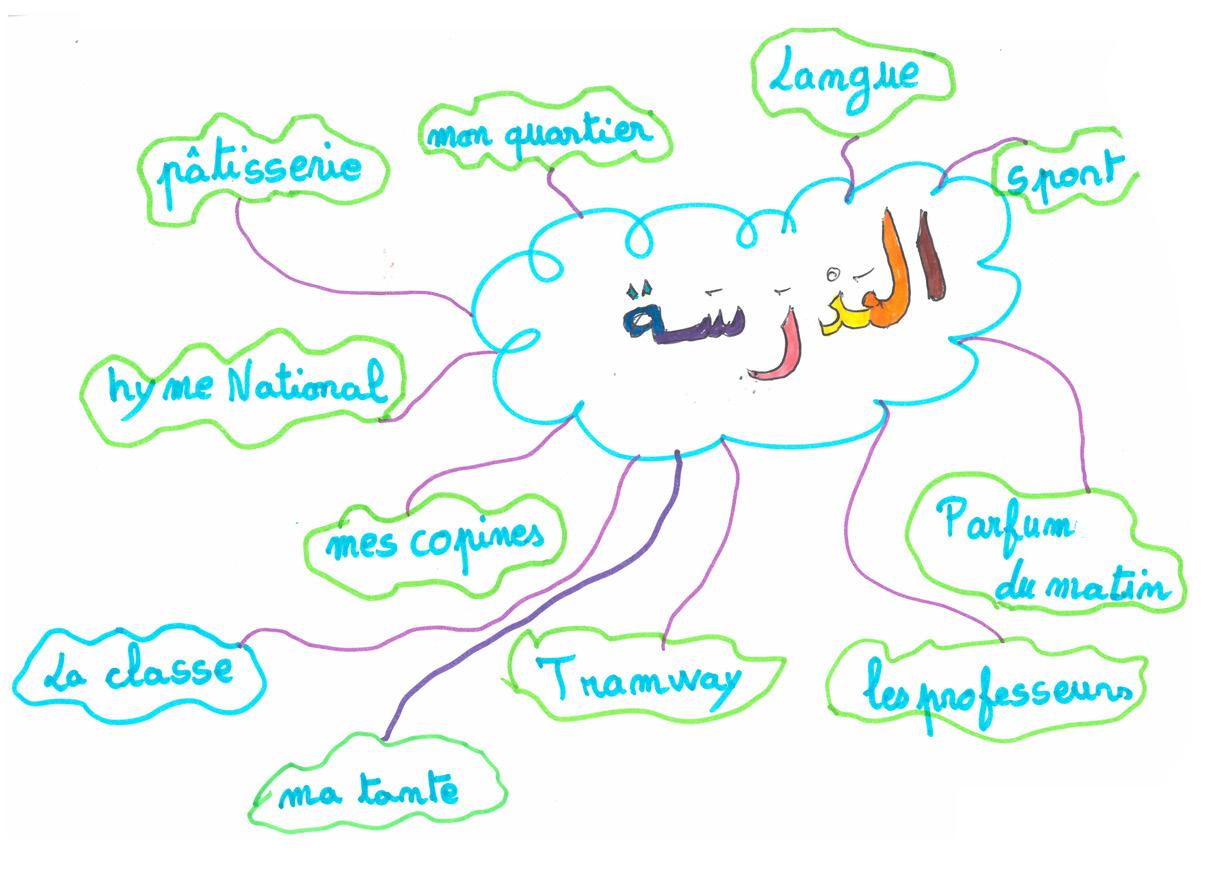 Langue
mon quartier
sport
pâtisserie
المَدْرَسَة
hyme National
mes copines
Parfum
du matin
La classe
Tramway
les professeurs
ma tante